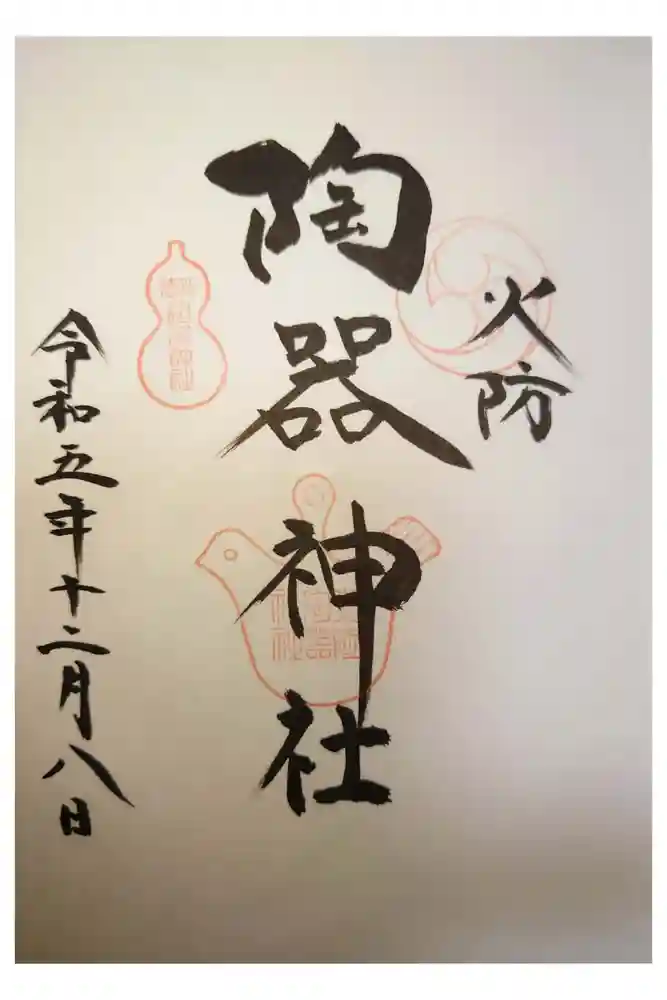 火防
陶器神社
令和五年十二月八日